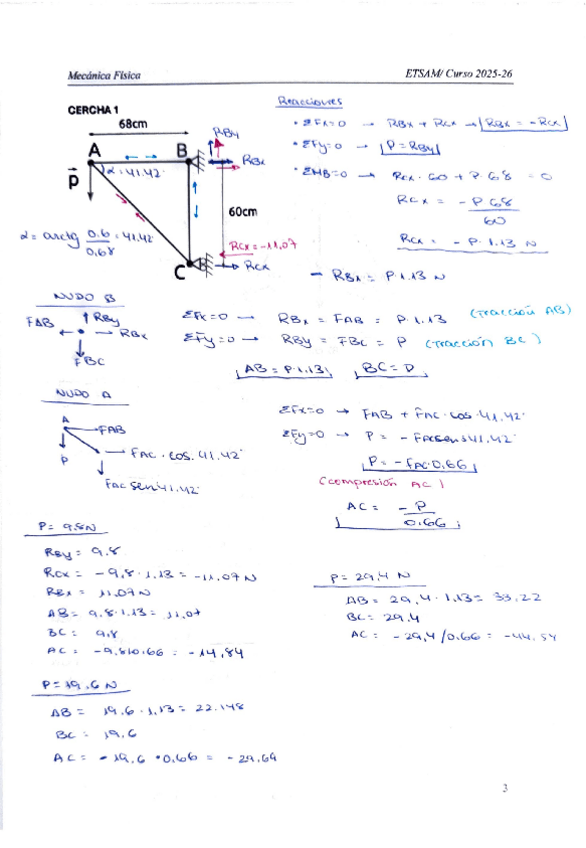 Mecánica Física
ETSAM/ Curso 2025-26
CERCHA 1
68cm
A
B
P
α = 41.42°
RBy
RBx
60cm
α = arctg 0.6/0.68 = 41.42
C
Rcx = -11,07
Rcx
Reacciones
• ΣFx=0 → RBx + Rcx → RBx = -Rcx
• ΣFy=0 → P = RBy
• ΣMB=0 → Rcx · 60 + P · 68 = 0
Rcx = -P 68/60
Rcx = - P · 1.13 N
- RBx = P 1.13 N
NUDO B
FAB
RBy
RBx
FBC
ΣFx=0 → RBx = FAB = P · 1.13 (tracción AB)
ΣFy=0 → RBy = FBC = P (tracción BC)
AB = P · 1.13
BC = P
NUDO A
A
FAB
P
FAC · cos. 41,42°
FAC sen 41,42°
ΣFx=0 → FAB + FAC · cos 41,42°
ΣFy=0 → P = - FAC sen 41,42°
P = - FAC · 0,66
(compresión AC)
AC = -P/0.66
P = 9.8 N
RBy = 9.8
Rcx = -9,8 · 1.13 = -11,07 N
RBx = 11.07 N
AB = 9.8 · 1.13 = 11,07
BC = 9.8
AC = -9.8/0.66 = -14,84
P = 19.6 N
AB = 19.6 · 1,13 = 22.148
BC = 19.6
AC = - 19.6 · 0.66 = - 29.69
P = 29,4 N
AB = 29,4 · 1.13 = 33,22
BC = 29.4
AC = - 29,4 / 0.66 = -44,54
3